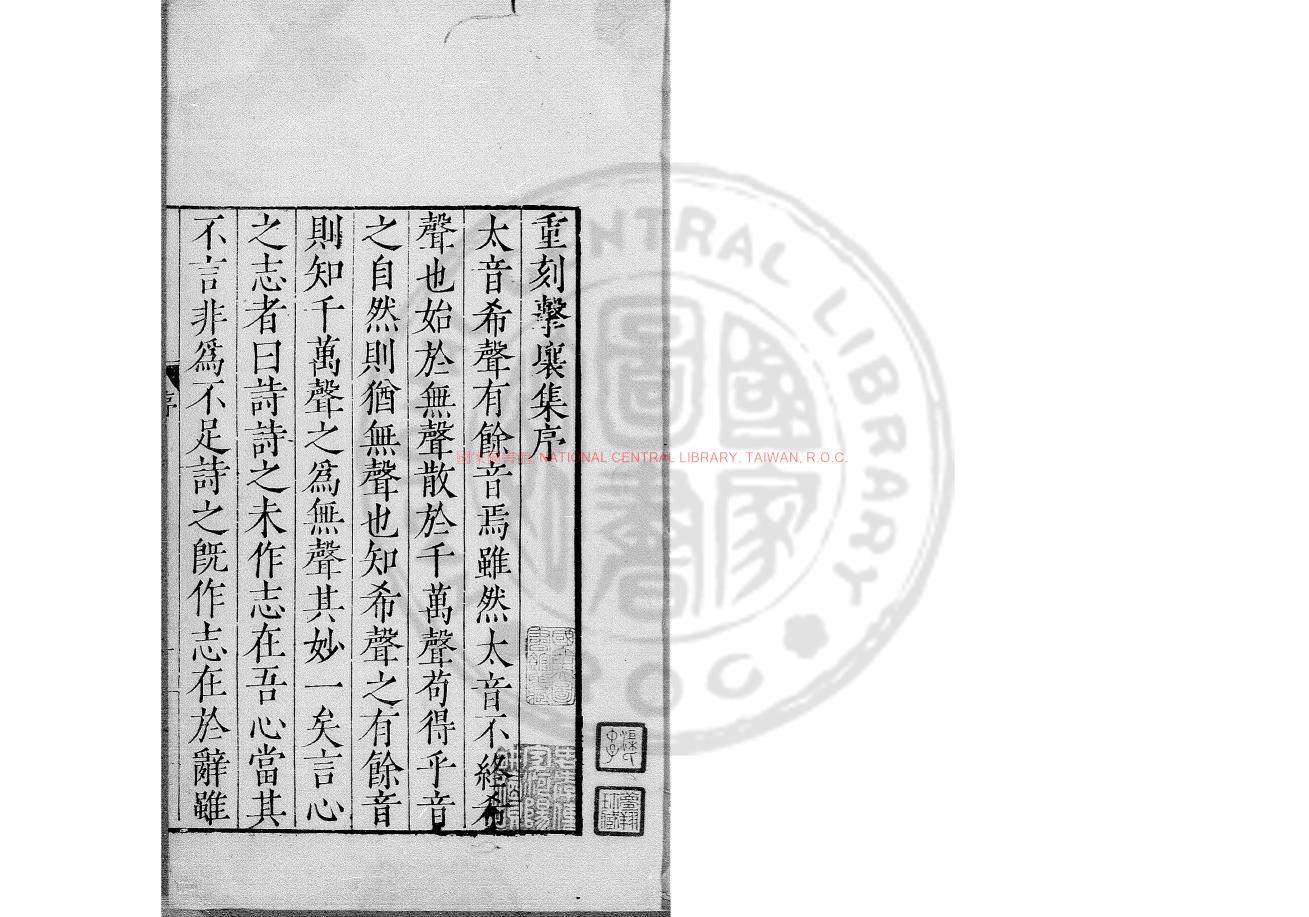 重刻擊壤集序
太音希聲有餘音焉雖然太音不絡希
聲也始於無聲散於千萬聲苟得乎音
之自然則猶無聲也知希聲之有餘音
則知千萬聲之爲無聲其妙一矣言心
之志者曰詩詩之未作志在吾心當其
不言非爲不足詩之旣作志在於辭雖
序
國家圖書館, NATIONAL CENTRAL LIBRARY, TAIWAN, R.O.C.
CENTRAL LIBRARY
R O C
國家圖書